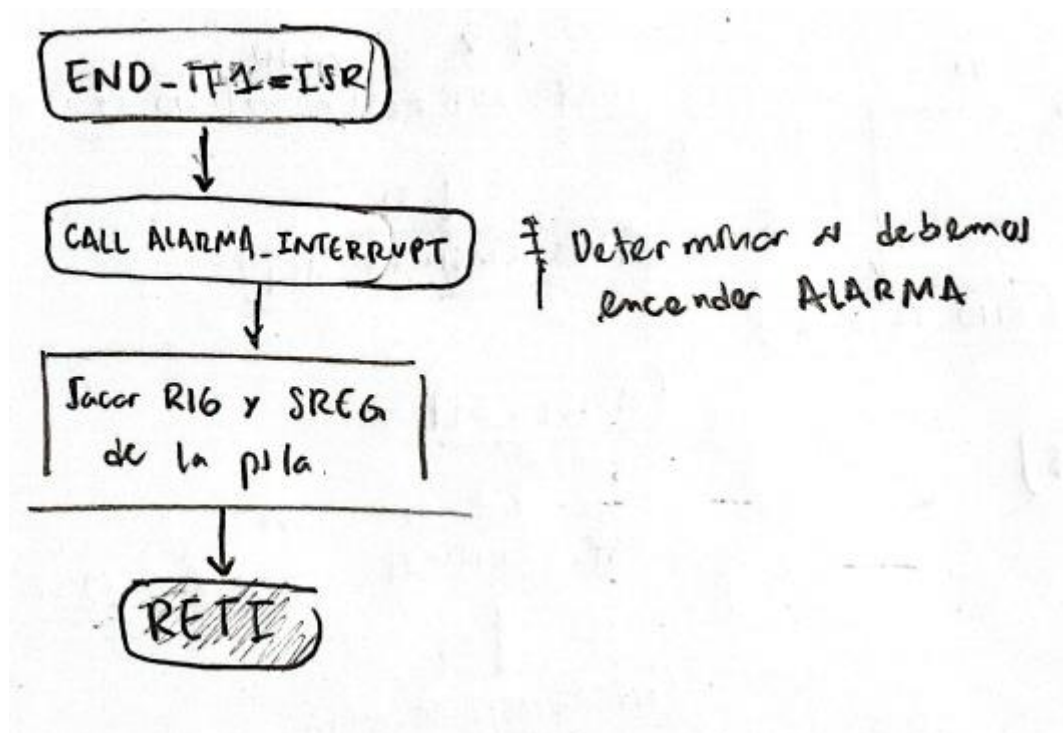 END_IT1_ISR
CALL ALARMA_INTERRUPT
Determinar si debemos
encender ALARMA
Sacar R16 y SREG
de la pila.
RETI